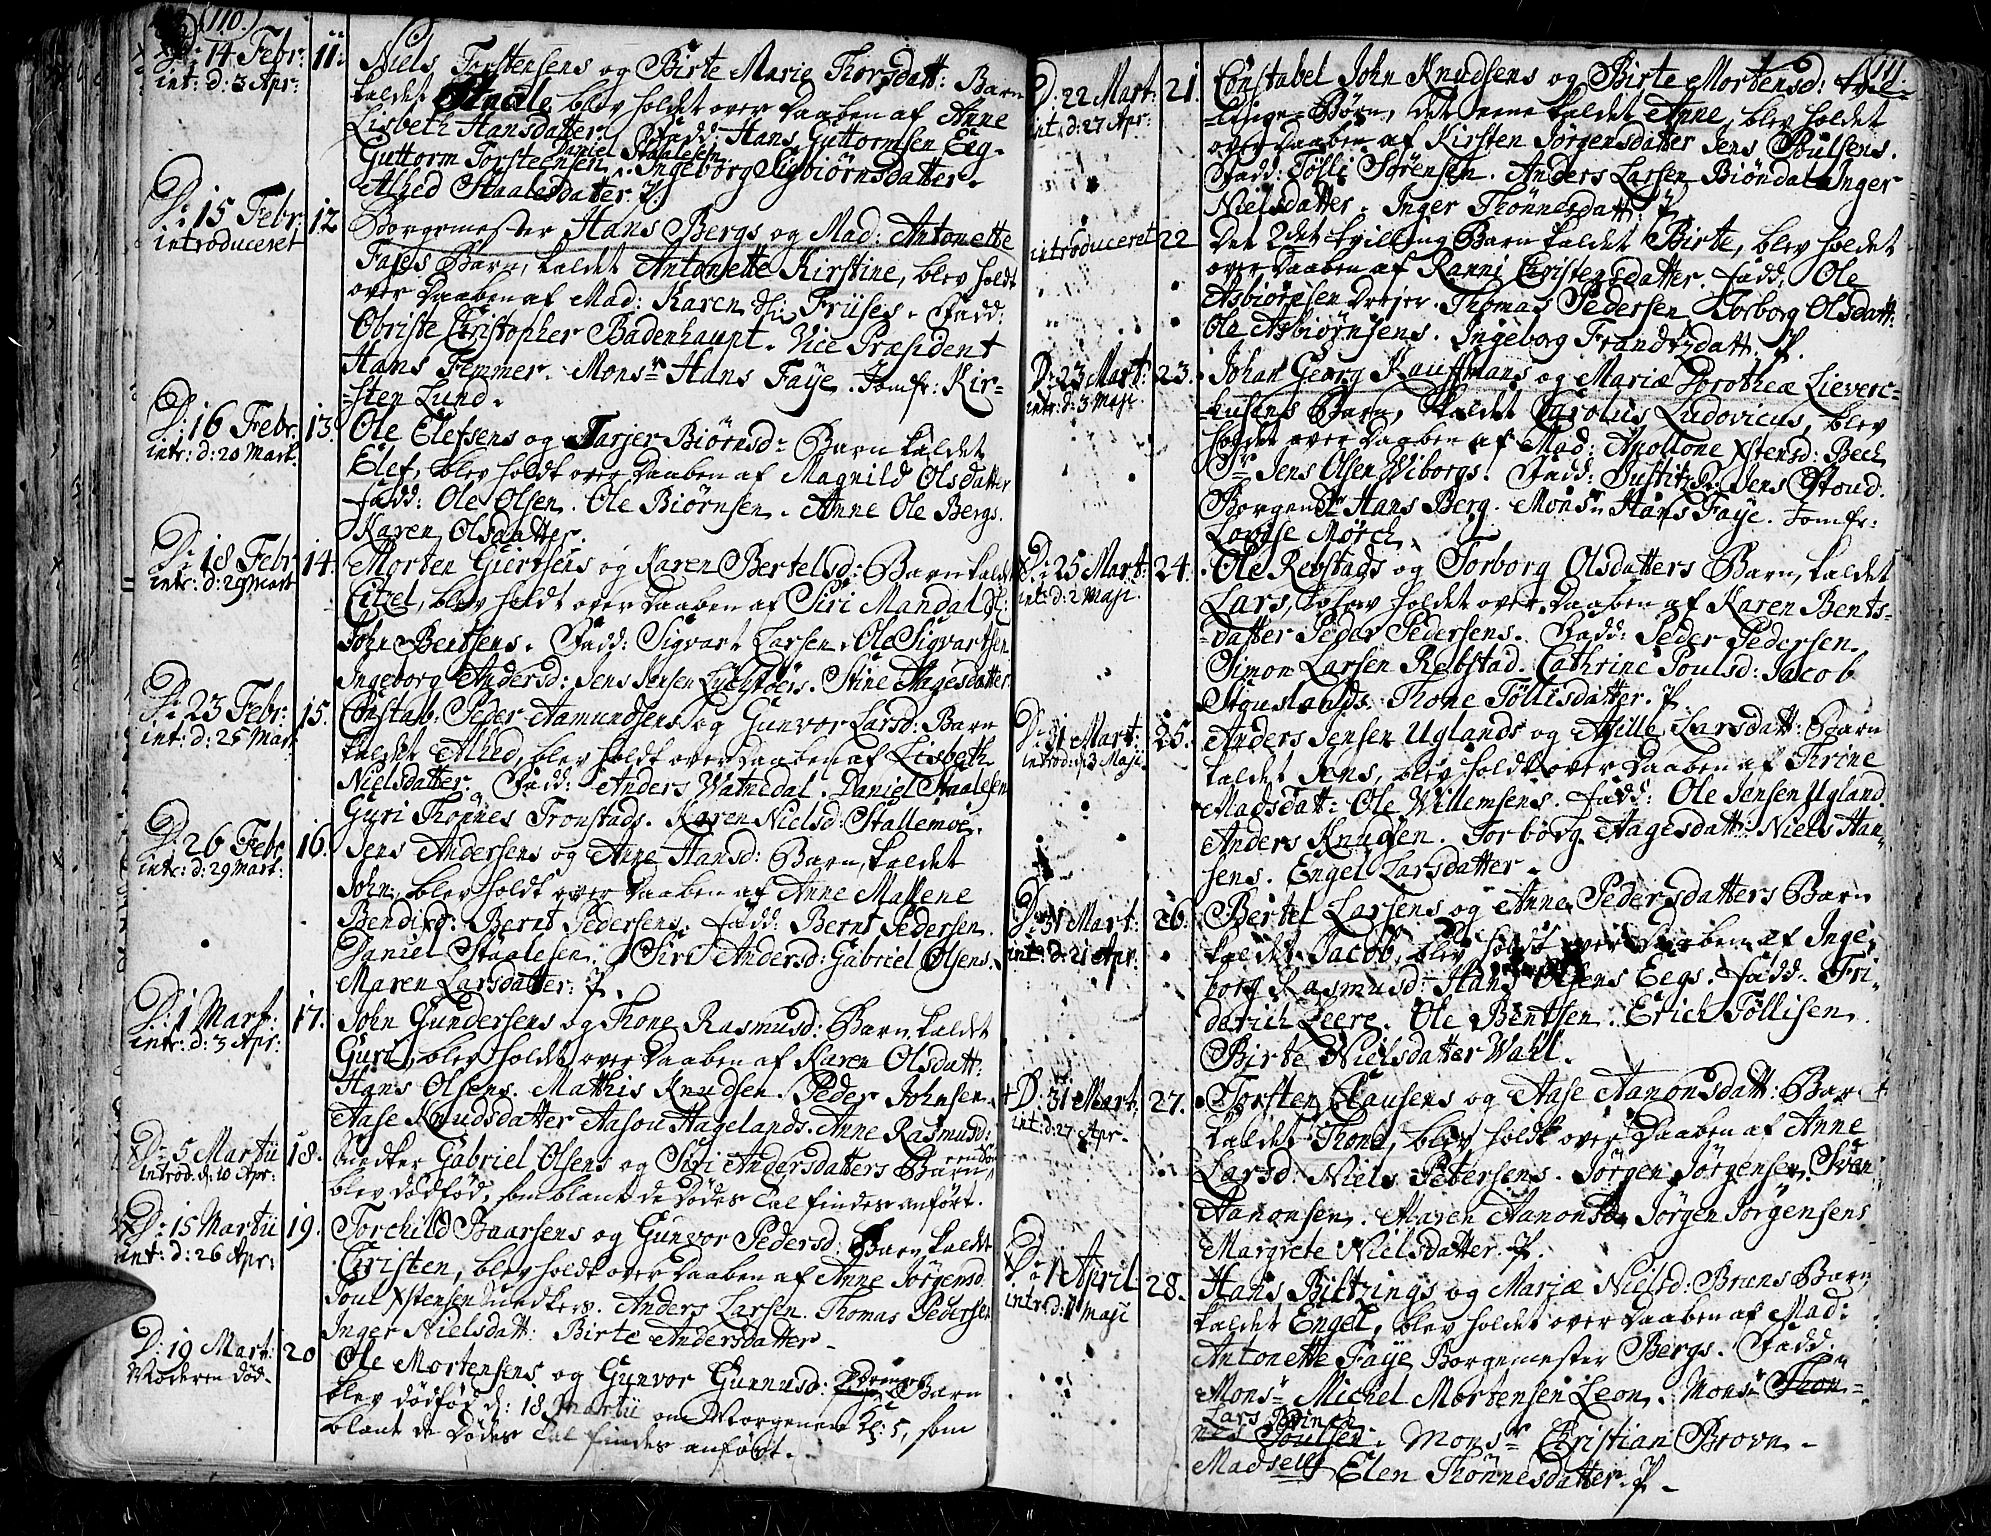 (110.)
D: 14 Febr: 11. Niels Torstensens og Birte Marie Thorsdatt: Barn
int: d: 3 Apr: kaldet Staale blev holdet over Daaben af Anne
Lisbeth Hansdatter. Fadd: Hans Guttormsen Eeg.
Daniel Staalesen
Guttorm Torsteensen. Ingeborg Sigbiørnsdatter.
Alhed Staalesdatter. P.
D: 15 Febr. 12 Borgemester Hans Bergs og Mad: Antonette
introduceret Fayes Barn, kaldet Antonette Kirstine, blev holdt
over Daaben af Mad: Karen Friises. Fadd:
Obriste Christopher Badenhaupt. Vice Præsident
Hans Femmer. Monsr Hans Faye. Jomfr: Kir-
sten Lund.
D: 16 Febr. 13. Ole Elefsens og Tarjer Biørnsd: Barn kaldet
intr: d: 20 Mart. Elef, blev holdt over Daaben af Magnild Olsdatter
Fadd: Ole Olsen. Ole Biørnsen. Anne Ole Bergs.
Karen Olsdatter.
D: 18 Febr 14. Morten Giertsens og Karen Bertelsd: Barn kaldet
intr: d: 29 Mart Citzel, blev holdt over Daaben af Siri Mandal
John Bentsens. Fadd: Sigvart Larsen. Ole Sigvartsen
Ingeborg Andersd: Jens Jensen Stine Aagesdatter
D: 23 Febr: 15. Constab. Peder Aamundsens og Gunvor Larsd: Barn
int: d: 25 Mart kaldet Alhed, blev holdt over Daaben af Lisbeth
Nielsdatter. Fadd: Anders Watnedal. Daniel Staalesen
Guri Thonnes Tronstads. Karen Nielsd: Stallemoe.
D: 26 Febr 16. Jens Andersens og Anne Hansd: Barn, kaldet
intr: d: 29 Mart: John, blev holdt over Daaben af Anne Mallene
Bendixd: Bernt Pedersens. Fadd: Bernt Pedersen.
Daniel Staalesen. Siri Andersd: Gabriel Olsens.
Maren Larsdatter: P.
D: 1 Mart: 17. John Gundersens og Thone Rasmusd: Barn kaldet
intr: d: 3 Apr: Guri, blev holdt over Daaben af Karen Olsdatt:
Hans Olsens. Mathis Knudsen. Peder Johnsen.
Aase Knudsdatter Aasou Hagelands. Anne Rasmusd:
D: 5 Martii 18. Snedker Gabriel Olsens og Siri Andersdatters Barn,
introd. d: 10 Apr: blev dødfød, som blant de Dødes Tal findes anført.
D: 15 Martii 19. Torchild Baarsens og Gunvor Pedersd: Barn kaldet
int: d: 26 Apr: Christen, blev holdt over Daaben af Anne Jørgensd.
Poul Xstensen Snedkers. Anders Larsen. Thomas Pedersen
Inger Nielsdatt: Birte Andersdatter.
D: 19 Mart: 20 Ole Mortensens og Gunvor Gunnusd: Barn
Moderen død. blev dødfød d: 18 Martii om Morgenen Kl: 5, som
blant de Dødes Tal findes anført.
111.
D: 22 Mart: 21. Constabel John Knudsens og Birte Mortensd: tvil-
int: d: 27 Apr: linge-Børn, det eene kaldet Anne, blev holdet
over Daaben af Kirsten Jørgensdatter Jens Poulsens.
Fadd: Tølli Sørensen. Anders Larsen Biøndal. Inger
Nielsdatter. Inger Thonnesdatt: P.
introduceret 22 Det 2det tvilling Barn kaldet Birte, blev holdet
over Daaben af Ranni Christensdatter. Fadd: Ole
Asbiørnsen Drejer. Thomas Pedersen. Torborg Olsdatt:
Ole Asbiørnsens. Ingeborg Frandtzdatt. P.
D: 23 Mart: 23. Johan Georg Kauffmans og Mariæ Dorotheæ Lieverc-
intr: d: 3 Maji husens Barn, kaldet Carolus Ludovicus, blev
holdet over Daaben af Mad: Apollone Xstensd: Bech
Sr Jens Olsen Wiborgs. Fadd: Justitzr: Jens Stoud.
Borgem: Hans Berg. Monsr Hans Faye. Jomfr:
Lovise Mørch.
D: 25 Mart: 24. Ole Rebstads og Torborg Olsdatters Barn, kaldet
int: d: 2 Maji. Lars, blev holdet over Daaben af Karen Bents-
datter Peder Pedersens. Fadd: Peder Pedersen.
Simon Larsen Rebstad. Cathrine Poulsd: Jacob
Stouslands. Thone Tøllisdatter. P.
D: 31 Mart: 25. Anders Jensen Uglands og Aselle Larsdatt: Barn
introd: d: 3 Maji. kaldet Jens, blev holdt over Daaben af Trine
Madsdatt: Ole Willemsens. Fadd: Ole Jensen Ugland.
Anders Knudsen. Torborg Aagesdatt: Niels Han-
sens. Engel Larsdatter.
D: 31 Mart: 26. Bertel Larsens og Anne Pedersdatters Barn
int: d: 21 Apr: kaldet Jacob, blev holdt over Daaben af Inge-
borg Rasmusd: Hans Olsens Eegs. Fadd: Fri-
derich Leere. Ole Bentsen. Erich Tøllisen.
Birte Nielsdatter Wahl.
D: 31 Mart: 27. Torsten Clausens og Aase Aanonsdatt: Barn
int: d: 27 Apr. kaldet Thone, blev holdt over Daaben af Anne
Larsd: Niels Petersens. Jørgen Jørgensen. Sven
Aanonsen. Maren Aanonsd. Jørgen Jørgensens
Margrete Nielsdatter. P.
D: 1 April. 28. Hans Biltzings og Mariæ Nielsd: Bruns Barn
introd: 1 Maji kaldet Engel, blev holdet over Daaben af Mad:
Antonette Faye Borgemester Bergs. Fadd:
Monsr Michel Mortensen Leon. Monsr Thon-
Lars Prince
nes Poulsen. Monsr Christian Brovn.
Madselle Elen Thonnesdatter. P.